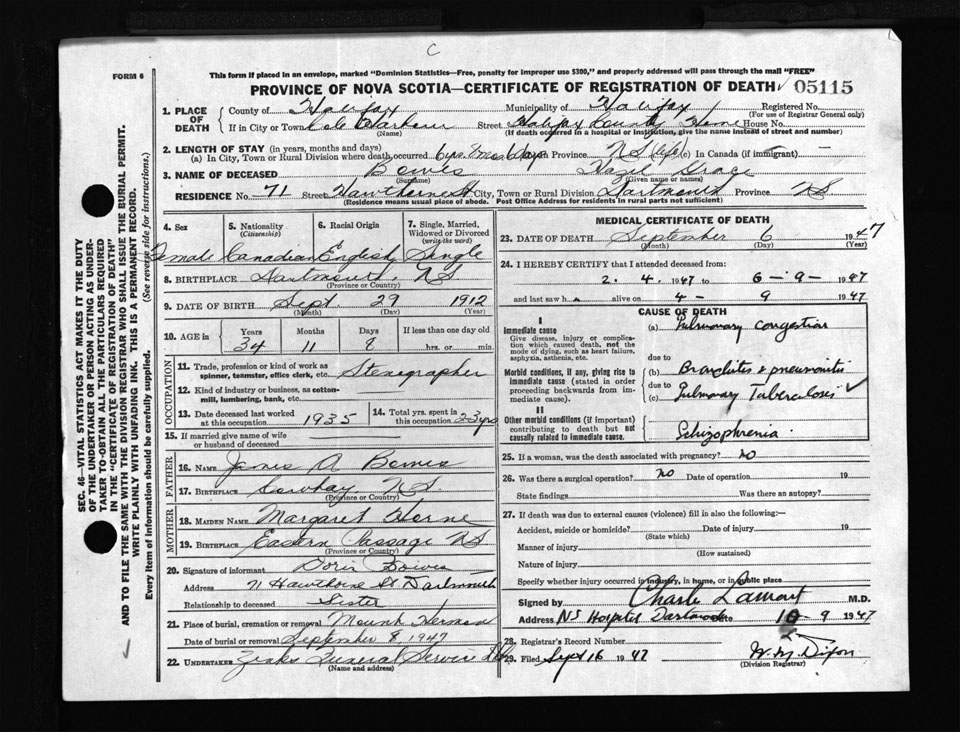 C
FORM 6
This form if placed in an envelope, marked "Dominion Statistics—Free, penalty for improper use $300," and properly addressed will pass through the mail "FREE"
PROVINCE OF NOVA SCOTIA—CERTIFICATE OF REGISTRATION OF DEATH ✓ 05115
1. PLACE OF DEATH
County of Halifax Municipality of Halifax Registered No.
(For use of Registrar General only)
If in City or Town Cole Harbour Street Halifax County Home House No.
(Name) (If death occurred in a hospital or institution, give the name instead of street and number)
2. LENGTH OF STAY (in years, months and days)
(a) In City, Town or Rural Division where death occurred 6 days Province NS (life) (c) In Canada (if immigrant) —
3. NAME OF DECEASED Bowes Hazel Grace
(Surname) (Given name or names)
RESIDENCE No. 71 Street Hawthorne St City, Town or Rural Division Dartmouth Province NS
(Residence means usual place of abode. Post Office Address for residents in rural parts not sufficient)
4. Sex 5. Nationality (Citizenship) 6. Racial Origin 7. Single, Married, Widowed or Divorced (write the word)
Female Canadian English Single
8. BIRTHPLACE Dartmouth, NS
(Province or Country)
9. DATE OF BIRTH Sept. 29 1912
(Month) (Day) (Year)
10. AGE in Years Months Days If less than one day old
34 11 8 hrs. or min.
OCCUPATION
11. Trade, profession or kind of work as spinner, teamster, office clerk, etc. Stenographer
12. Kind of industry or business, as cotton-mill, lumbering, bank, etc.
13. Date deceased last worked at this occupation 1935 14. Total yrs. spent in this occupation 2-3 yrs
15. If married give name of wife or husband of deceased
FATHER
16. NAME James A Bowes
17. BIRTHPLACE Cowbay N.S.
(Province or Country)
MOTHER
18. MAIDEN NAME Margaret Horne
19. BIRTHPLACE Eastern Passage NS
(Province or Country)
20. Signature of informant Doris Bowes
Address 71 Hawthorne St Dartmouth
Relationship to deceased Sister
21. Place of burial, cremation or removal Mount Hermon
Date of burial or removal September 8 1947
22. UNDERTAKER Zinks Funeral Service Ltd
(Name and address)
MEDICAL CERTIFICATE OF DEATH
23. DATE OF DEATH September 6 1947
(Month) (Day) (Year)
24. I HEREBY CERTIFY that I attended deceased from:
2. 4. 1947 to 6-9-1947
and last saw h alive on 4-9 1947
CAUSE OF DEATH
I
Immediate cause
Give disease, injury or complication which caused death, not the mode of dying, such as heart failure, asphyxia, asthenia, etc.
(a) Pulmonary congestion
due to
Morbid conditions, if any, giving rise to immediate cause (stated in order proceeding backwards from immediate cause).
(b) Bronchitis & pneumonitis
due to
(c) Pulmonary Tuberculosis ✓
II
Other morbid conditions (if important) contributing to death but not causally related to immediate cause.
Schizophrenia
25. If a woman, was the death associated with pregnancy? No
26. Was there a surgical operation? No Date of operation 19
State findings Was there an autopsy?
27. If death was due to external causes (violence) fill in also the following:—
Accident, suicide or homicide? Date of injury 19
(State which)
Manner of injury
(How sustained)
Nature of injury
Specify whether injury occurred in industry, in home, or in public place
Signed by Charles Lamont M.D.
Address NS Hospital Dartmouth Date 10-9 1947
28. Registrar's Record Number
29. Filed Sept 16 1947 W. M. Dixon
(Division Registrar)
SEC. 46—VITAL STATISTICS ACT MAKES IT THE DUTY OF THE UNDERTAKER OR PERSON ACTING AS UNDERTAKER TO OBTAIN ALL THE PARTICULARS REQUIRED IN THE "CERTIFICATE OF REGISTRATION OF DEATH" AND TO FILE THE SAME WITH THE DIVISION REGISTRAR WHO SHALL ISSUE THE BURIAL PERMIT.
WRITE PLAINLY WITH UNFADING INK. THIS IS A PERMANENT RECORD.
Every item of information should be carefully supplied. (See reverse side for instructions.)